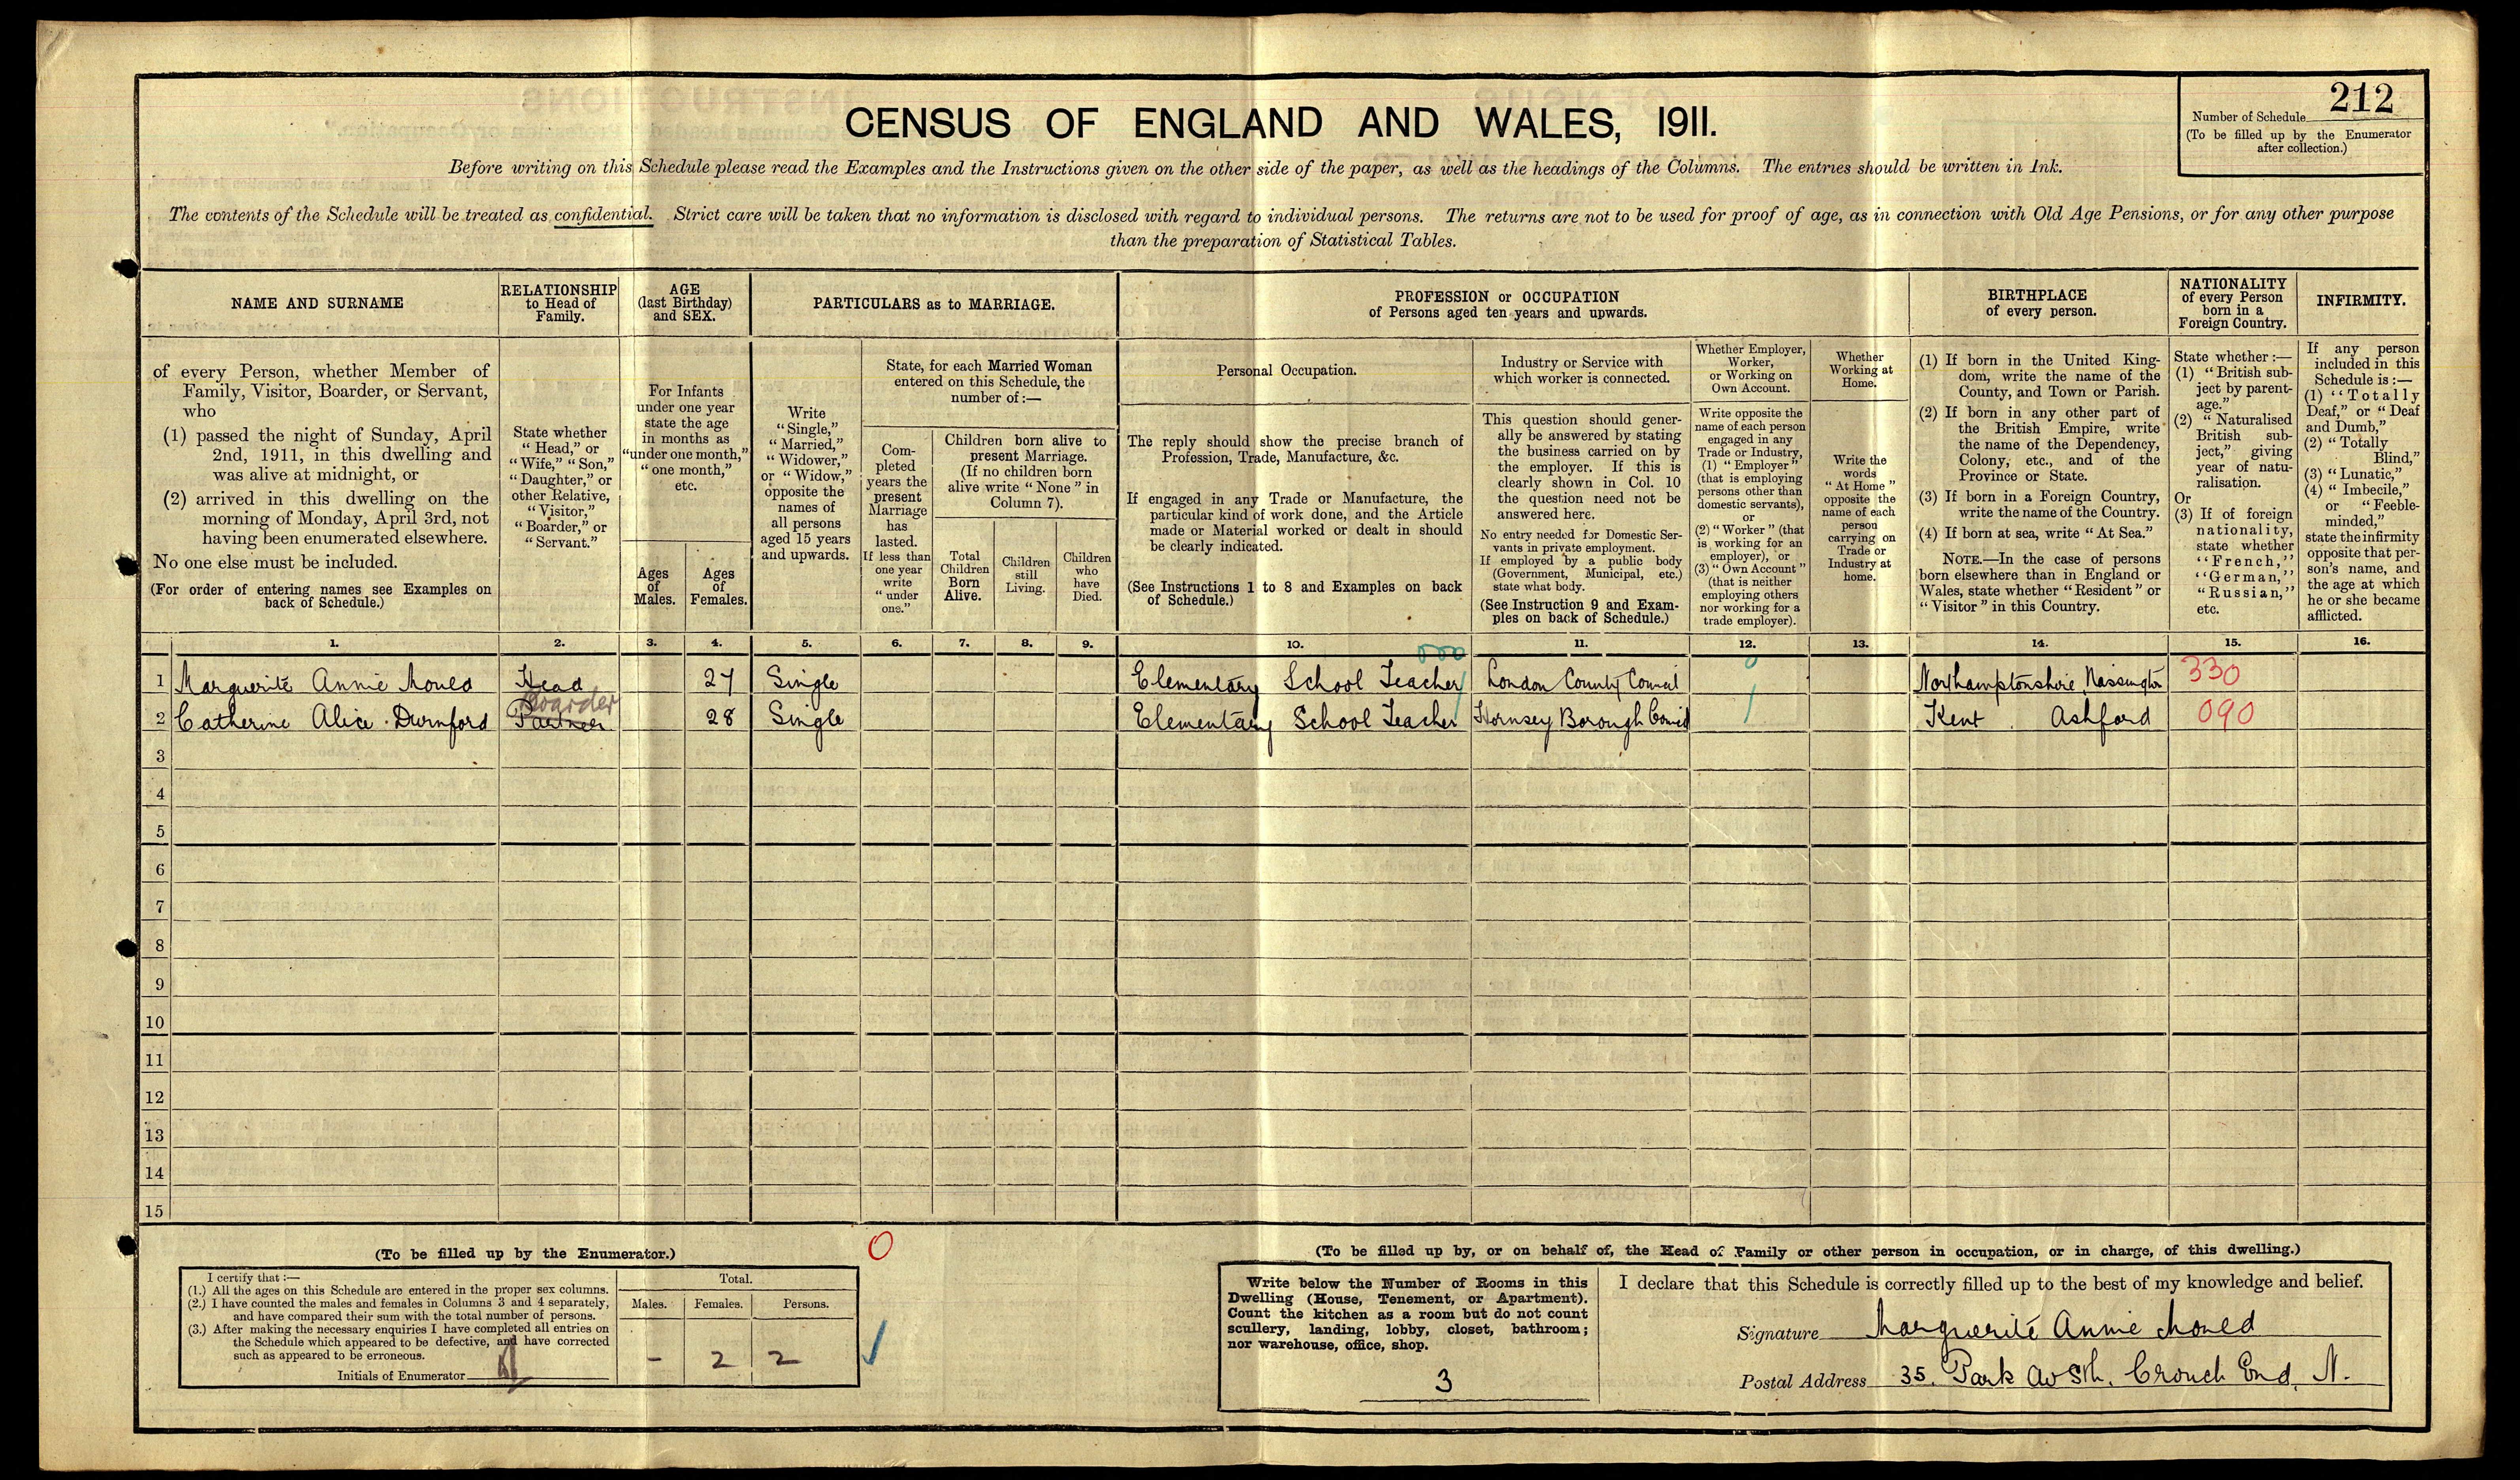 212
Number of Schedule
(To be filled up by the Enumerator
after collection.)
CENSUS OF ENGLAND AND WALES, 1911.
Before writing on this Schedule please read the Examples and the Instructions given on the other side of the paper, as well as the headings of the Columns. The entries should be written in Ink.
The contents of the Schedule will be treated as confidential. Strict care will be taken that no information is disclosed with regard to individual persons. The returns are not to be used for proof of age, as in connection with Old Age Pensions, or for any other purpose
than the preparation of Statistical Tables.
NAME AND SURNAME
of every Person, whether Member of
Family, Visitor, Boarder, or Servant,
who
(1) passed the night of Sunday, April
2nd, 1911, in this dwelling and
was alive at midnight, or
(2) arrived in this dwelling on the
morning of Monday, April 3rd, not
having been enumerated elsewhere.
No one else must be included.
(For order of entering names see Examples on
back of Schedule.)
RELATIONSHIP
to Head of
Family.
State whether
"Head," or
"Wife," "Son,"
"Daughter," or
other Relative,
"Visitor,"
"Boarder," or
"Servant."
AGE
(last Birthday)
and SEX.
For Infants
under one year
state the age
in months as
"under one month,"
"one month,"
etc.
Ages
of
Males.
Ages
of
Females.
PARTICULARS as to MARRIAGE.
Write
"Single,"
"Married,"
"Widower,"
or "Widow,"
opposite the
names of
all persons
aged 15 years
and upwards.
State, for each Married Woman
entered on this Schedule, the
number of:—
Com-
pleted
years the
present
Marriage
has
lasted.
If less than
one year
write
"under
one."
Children born alive to
present Marriage.
(If no children born
alive write "None" in
Column 7).
Total
Children
Born
Alive.
Children
still
Living.
Children
who
have
Died.
PROFESSION or OCCUPATION
of Persons aged ten years and upwards.
Personal Occupation.
The reply should show the precise branch of
Profession, Trade, Manufacture, &c.
If engaged in any Trade or Manufacture, the
particular kind of work done, and the Article
made or Material worked or dealt in should
be clearly indicated.
(See Instructions 1 to 8 and Examples on back
of Schedule.)
Industry or Service with
which worker is connected.
This question should gener-
ally be answered by stating
the business carried on by
the employer. If this is
clearly shown in Col. 10
the question need not be
answered here.
No entry needed for Domestic Ser-
vants in private employment.
If employed by a public body
(Government, Municipal, etc.)
state what body.
(See Instruction 9 and Exam-
ples on back of Schedule.)
Whether Employer,
Worker,
or Working on
Own Account.
Write opposite the
name of each person
engaged in any
Trade or Industry,
(1) "Employer"
(that is employing
persons other than
domestic servants),
or
(2) "Worker" (that
is working for an
employer), or
(3) "Own Account"
(that is neither
employing others
nor working for a
trade employer).
Whether
Working at
Home.
Write the
words
"At Home"
opposite the
name of each
person
carrying on
Trade or
Industry at
home.
BIRTHPLACE
of every person.
(1) If born in the United King-
dom, write the name of the
County, and Town or Parish.
(2) If born in any other part of
the British Empire, write
the name of the Dependency,
Colony, etc., and of the
Province or State.
(3) If born in a Foreign Country,
write the name of the Country.
(4) If born at sea, write "At Sea."
NOTE.—In the case of persons
born elsewhere than in England or
Wales, state whether "Resident" or
"Visitor" in this Country.
NATIONALITY
of every Person
born in a
Foreign Country.
State whether:—
(1) "British sub-
ject by parent-
age."
(2) "Naturalised
British sub-
ject," giving
year of natu-
ralisation.
Or
(3) If of foreign
nationality,
state whether
"French,"
"German,"
"Russian,"
etc.
INFIRMITY.
If any person
included in this
Schedule is:—
(1) "Totally
Deaf," or "Deaf
and Dumb,"
(2) "Totally
Blind,"
(3) "Lunatic,"
(4) "Imbecile,"
or "Feeble-
minded,"
state the infirmity
opposite that per-
son's name, and
the age at which
he or she became
afflicted.
1. 2. 3. 4. 5. 6. 7. 8. 9. 10. 11. 12. 13. 14. 15. 16.
000
1 Marguerite Annie Mould Head 27 Single Elementary School Teacher London County Council Northamptonshire, Nassington 330
Boarder
2 Catherine Alice Durnford Partner 28 Single Elementary School Teacher Hornsey Borough Council Kent. Ashford 090
3
4
5
6
7
8
9
10
11
12
13
14
15
(To be filled up by the Enumerator.)
0
I certify that:—
(1.) All the ages on this Schedule are entered in the proper sex columns.
(2.) I have counted the males and females in Columns 3 and 4 separately,
and have compared their sum with the total number of persons.
(3.) After making the necessary enquiries I have completed all entries on
the Schedule which appeared to be defective, and have corrected
such as appeared to be erroneous.
Initials of Enumerator
Total.
Males. Females. Persons.
- 2 2
(To be filled up by, or on behalf of, the Head of Family or other person in occupation, or in charge, of this dwelling.)
Write below the Number of Rooms in this
Dwelling (House, Tenement, or Apartment).
Count the kitchen as a room but do not count
scullery, landing, lobby, closet, bathroom;
nor warehouse, office, shop.
3
I declare that this Schedule is correctly filled up to the best of my knowledge and belief.
Signature Marguerite Annie Mould
Postal Address 35. Park Av Sth. Crouch End, N.